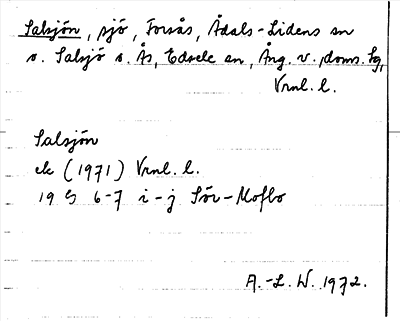 Salsjön, sjö, Forsås, Ådals-Lidens sn
o. Salsjö o. Ås, Edsele sn, Ång. v. doms. lg,
Vrnl. l.
Salsjön
ek (1971) Vrnl. l.
19 G 6-7 i-j Sör-Moflo
A.-L. W. 1972.